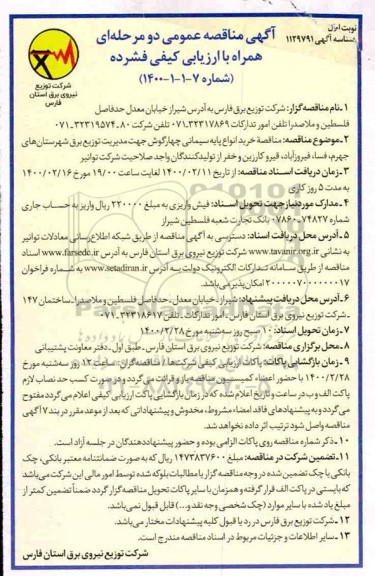 نوبت اول
شناسه آگهی ۱۱۲۹۷۹۱
آگهی مناقصه عمومی دو مرحله‌ای
همراه با ارزیابی کیفی فشرده
(شماره ۷-۱-۱-۱۴۰۰)
شرکت توزیع
نیروی برق استان
فارس
۱ـ نام مناقصه‌گزار: شرکت توزیع برق فارس به آدرس شیراز خیابان معدل حدفاصل
فلسطین و ملاصدرا تلفن امور تدارکات ۳۲۳۱۷۸۶۹ـ۰۷۱ تلفن شرکت ۸۰ـ۳۲۳۱۹۵۷۴ـ۰۷۱
۲ـ موضوع مناقصه: مناقصه خرید انواع پایه سیمانی چهارگوش جهت مدیریت توزیع برق شهرستان‌های
جهرم، فسا، فیروزآباد، قیروکارزین و خفر از تولیدکنندگان واجد صلاحیت شرکت توانیر
۳ـ زمان دریافت اسناد مناقصه: از تاریخ ۱۴۰۰/۰۲/۱۱ لغایت ساعت ۱۹/۰۰ مورخ ۱۴۰۰/۰۲/۱۶
به مدت ۵ روز کاری
۴ـ مدارک مورد نیاز جهت تحویل اسناد: فیش واریزی به مبلغ ۲۲۰۰۰۰ ریال واریز به حساب جاری
شماره ۷۴۸۲۷ـ۰۷۸۶۰ بانک تجارت شعبه فلسطین شیراز
۵ـ آدرس محل دریافت اسناد: دسترسی به آگهی مناقصه از طریق شبکه اطلاع‌رسانی معادلات توانیر
به نشانی www.tavanir.org.ir شرکت توزیع نیروی برق استان فارس به آدرس www.farsedc.ir اسناد
مناقصه از طریق سامانه تدارکات الکترونیک دولت به آدرس www.setadiran.ir به شماره فراخوان
۲۰۰۰۰۰۷۰۰۰۰۰۰۱۷ امکان‌پذیر می‌باشد.
۶ـ آدرس محل دریافت پیشنهاد: شیراز ـ خیابان معدل ـ حدفاصل فلسطین و ملاصدرا ـ ساختمان ۱۴۷
ـ شرکت توزیع نیروی برق استان فارس ـ امور تدارکات ـ تلفن ۳۲۳۱۸۶۱۷ـ۰۷۱
۷ـ زمان تحویل اسناد: ۱۰ صبح روز سه‌شنبه مورخ ۱۴۰۰/۲/۲۸
۸ـ محل برگزاری مناقصه: شرکت توزیع نیروی برق استان فارس ـ طبقه اول ـ دفتر معاونت پشتیبانی
۹ـ زمان بازگشایی پاکات: پاکات ارزیابی کیفی شرکت‌ها / مناقصه‌گران ـ ساعت ۱۲ روز سه‌شنبه مورخ
۱۴۰۰/۲/۲۸ با حضور اعضاء کمیسیون مناقصه باز و قرائت می‌گردد و در صورت کسب حد نصاب لازم
پاکت الف و ب در ساعت و تاریخ اعلام شده که در زمان بازگشایی پاکت ارزیابی کیفی اعلام می‌گردد مفتوح
می‌گردد و به پیشنهادهای فاقد امضاء مشروط، مخدوش و پیشنهاداتی که بعد از موعد مقرر در بند ۷ آگهی
مناقصه واصل شود ترتیب اثر داده نخواهد شد.
۱۰ـ ذکر شماره مناقصه روی پاکات الزامی بوده و حضور پیشنهاددهندگان در جلسه آزاد است.
۱۱ـ تضمین شرکت در مناقصه: مبلغ ۱۴۷۳۸۳۷۶۰۰ ریال که به صورت ضمانتنامه معتبر بانکی، چک
بانکی یا چک تضمین شده در وجه مناقصه گزار یا مطالبات بلوکه شده توسط امور مالی این شرکت می‌باشد
که بایستی در پاکت الف قرار گرفته و همزمان با سایر پاکات تحویل مناقصه گزار گردد ضمناً تضمین کمتر از
مبلغ یاد شده یا سایر موارد (چک شخصی وجه نقد و...) قابل قبول نمی‌باشد.
۱۲ـ شرکت توزیع برق فارس در رد یا قبول کلیه پیشنهادات مختار می‌باشد.
۱۳ـ سایر اطلاعات و جزئیات مربوط در اسناد مناقصه مندرج است.
شرکت توزیع نیروی برق استان فارس